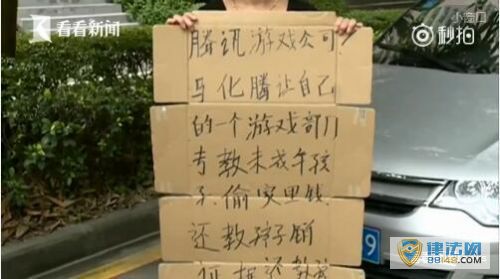 看看新闻
秒拍
腾讯游戏公司,
马化腾让自己
的一个游戏部门
专教未成年孩
子.偷家里钱
还教孩子销
还教孩
9
律法网
88148.com